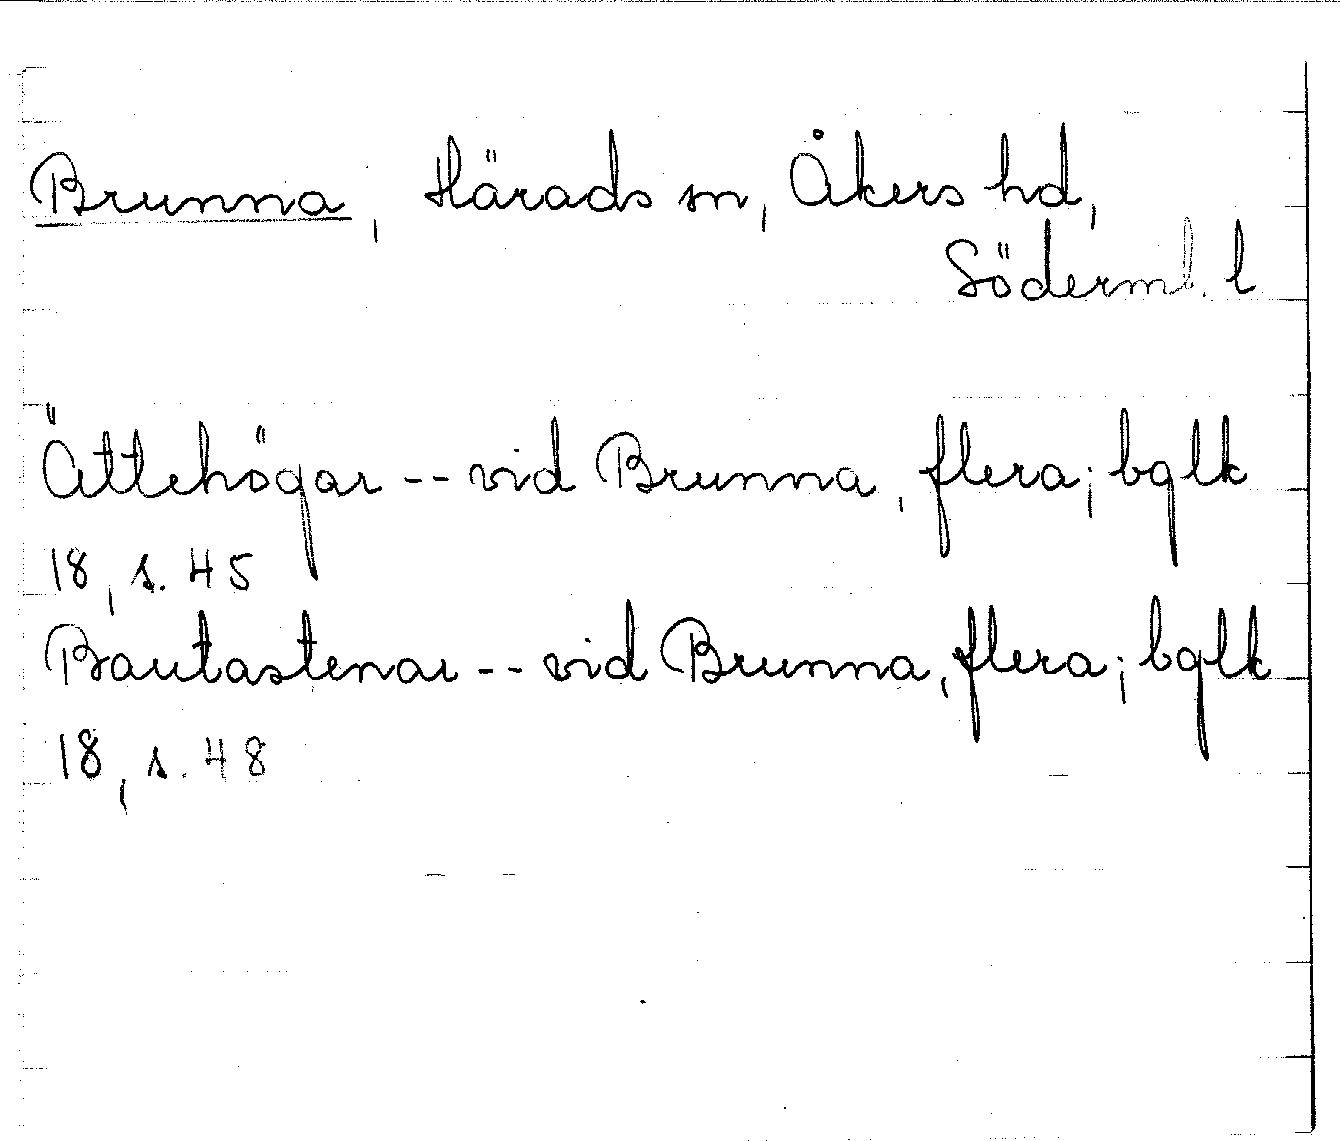 Brunna, Härads sn, Åkers hd,
Söderml. l
Ättehögar -- vid Brunna, flera; bglk
18, s. 45
Bautastenar -- vid Brunna, flera; bglk
18, s. 48